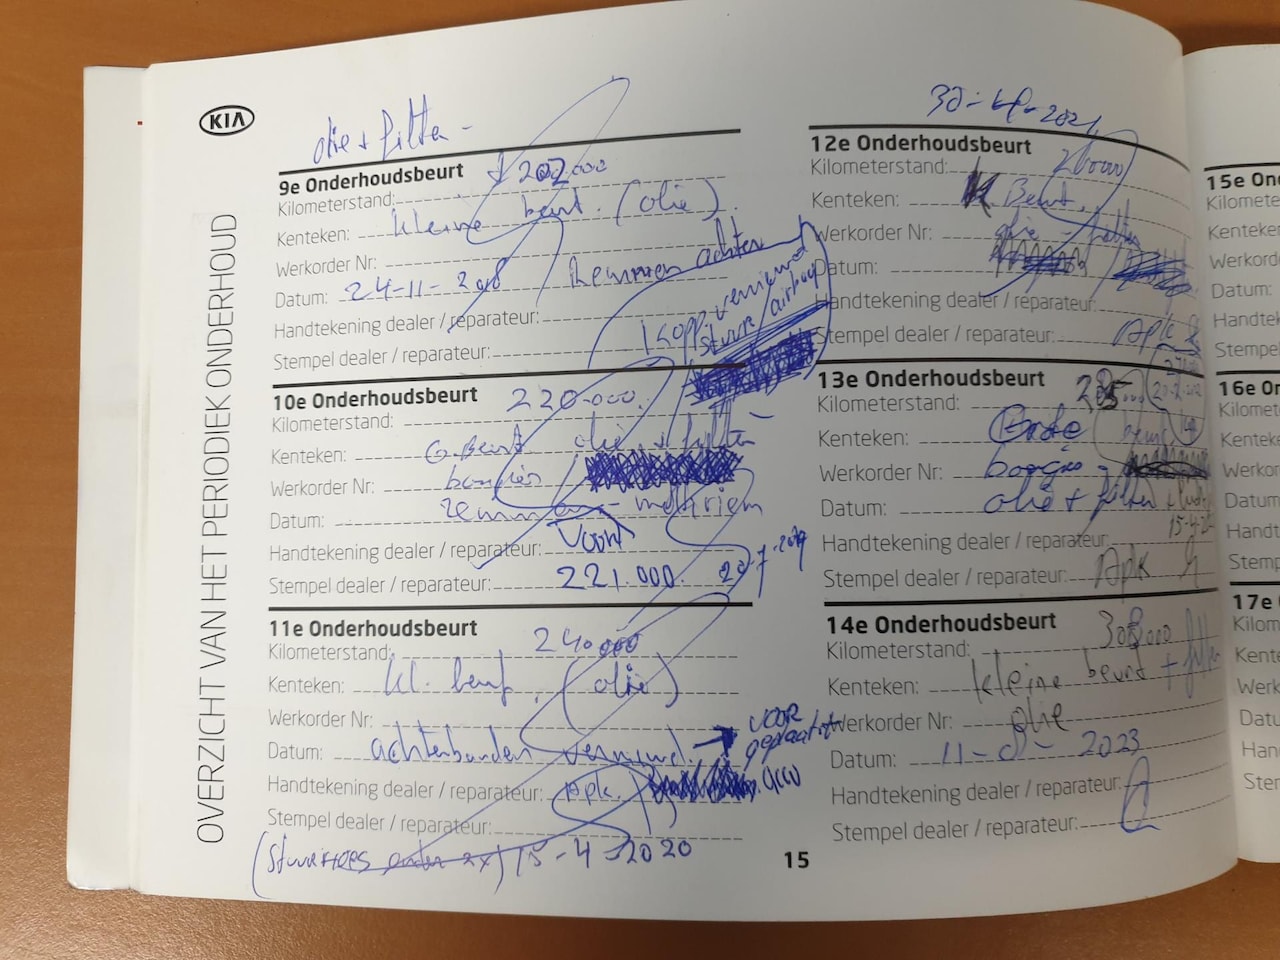 KIA
OVERZICHT VAN HET PERIODIEK ONDERHOUD
olie + filter -
9e Onderhoudsbeurt
Kilometerstand: 202.000
Kenteken: kleine beurt. (olie).
Werkorder Nr:
Datum: 24-11-2018 Remmen achter
Handtekening dealer / reparateur:
Stempel dealer / reparateur:
vernieuwd
stuur airbag
10e Onderhoudsbeurt
Kilometerstand: 220.000.
Kenteken: G. Beurt olie + filter
Werkorder Nr: bougies
Datum: remmen
Handtekening dealer / reparateur: Voor
Stempel dealer / reparateur: 221.000. 20-7-2019
11e Onderhoudsbeurt
Kilometerstand: 240.000
Kenteken: kl. beurt. (olie)
Werkorder Nr:
Datum: achterbanden vernieuwd. → VOOR
geplaatst
Handtekening dealer / reparateur: Apk. accu
Stempel dealer / reparateur:
15-4-2020
30- -2021
12e Onderhoudsbeurt
Kilometerstand: 260000
Kenteken: K Beurt.
Werkorder Nr: olie - filter
Datum:
Handtekening dealer / reparateur:
Stempel dealer / reparateur: Apk
13e Onderhoudsbeurt
Kilometerstand:
Kenteken: Grote beurt
Werkorder Nr: bougie
Datum: olie + filter +
Handtekening dealer / reparateur:
Stempel dealer / reparateur: Apk
14e Onderhoudsbeurt
Kilometerstand:
Kenteken: kleine beurt + filter
Werkorder Nr: olie
Datum: 11-8-2023
Handtekening dealer / reparateur:
Stempel dealer / reparateur:
15
15e
Kilomete
Kenteken
Werkord
Datum:
Handte
Stempel
16e On
Kilomet
Kenteke
Werkor
Datum
Handt
Stemp
17e
Kilom
Kente
Werk
Datu
Han
Ste